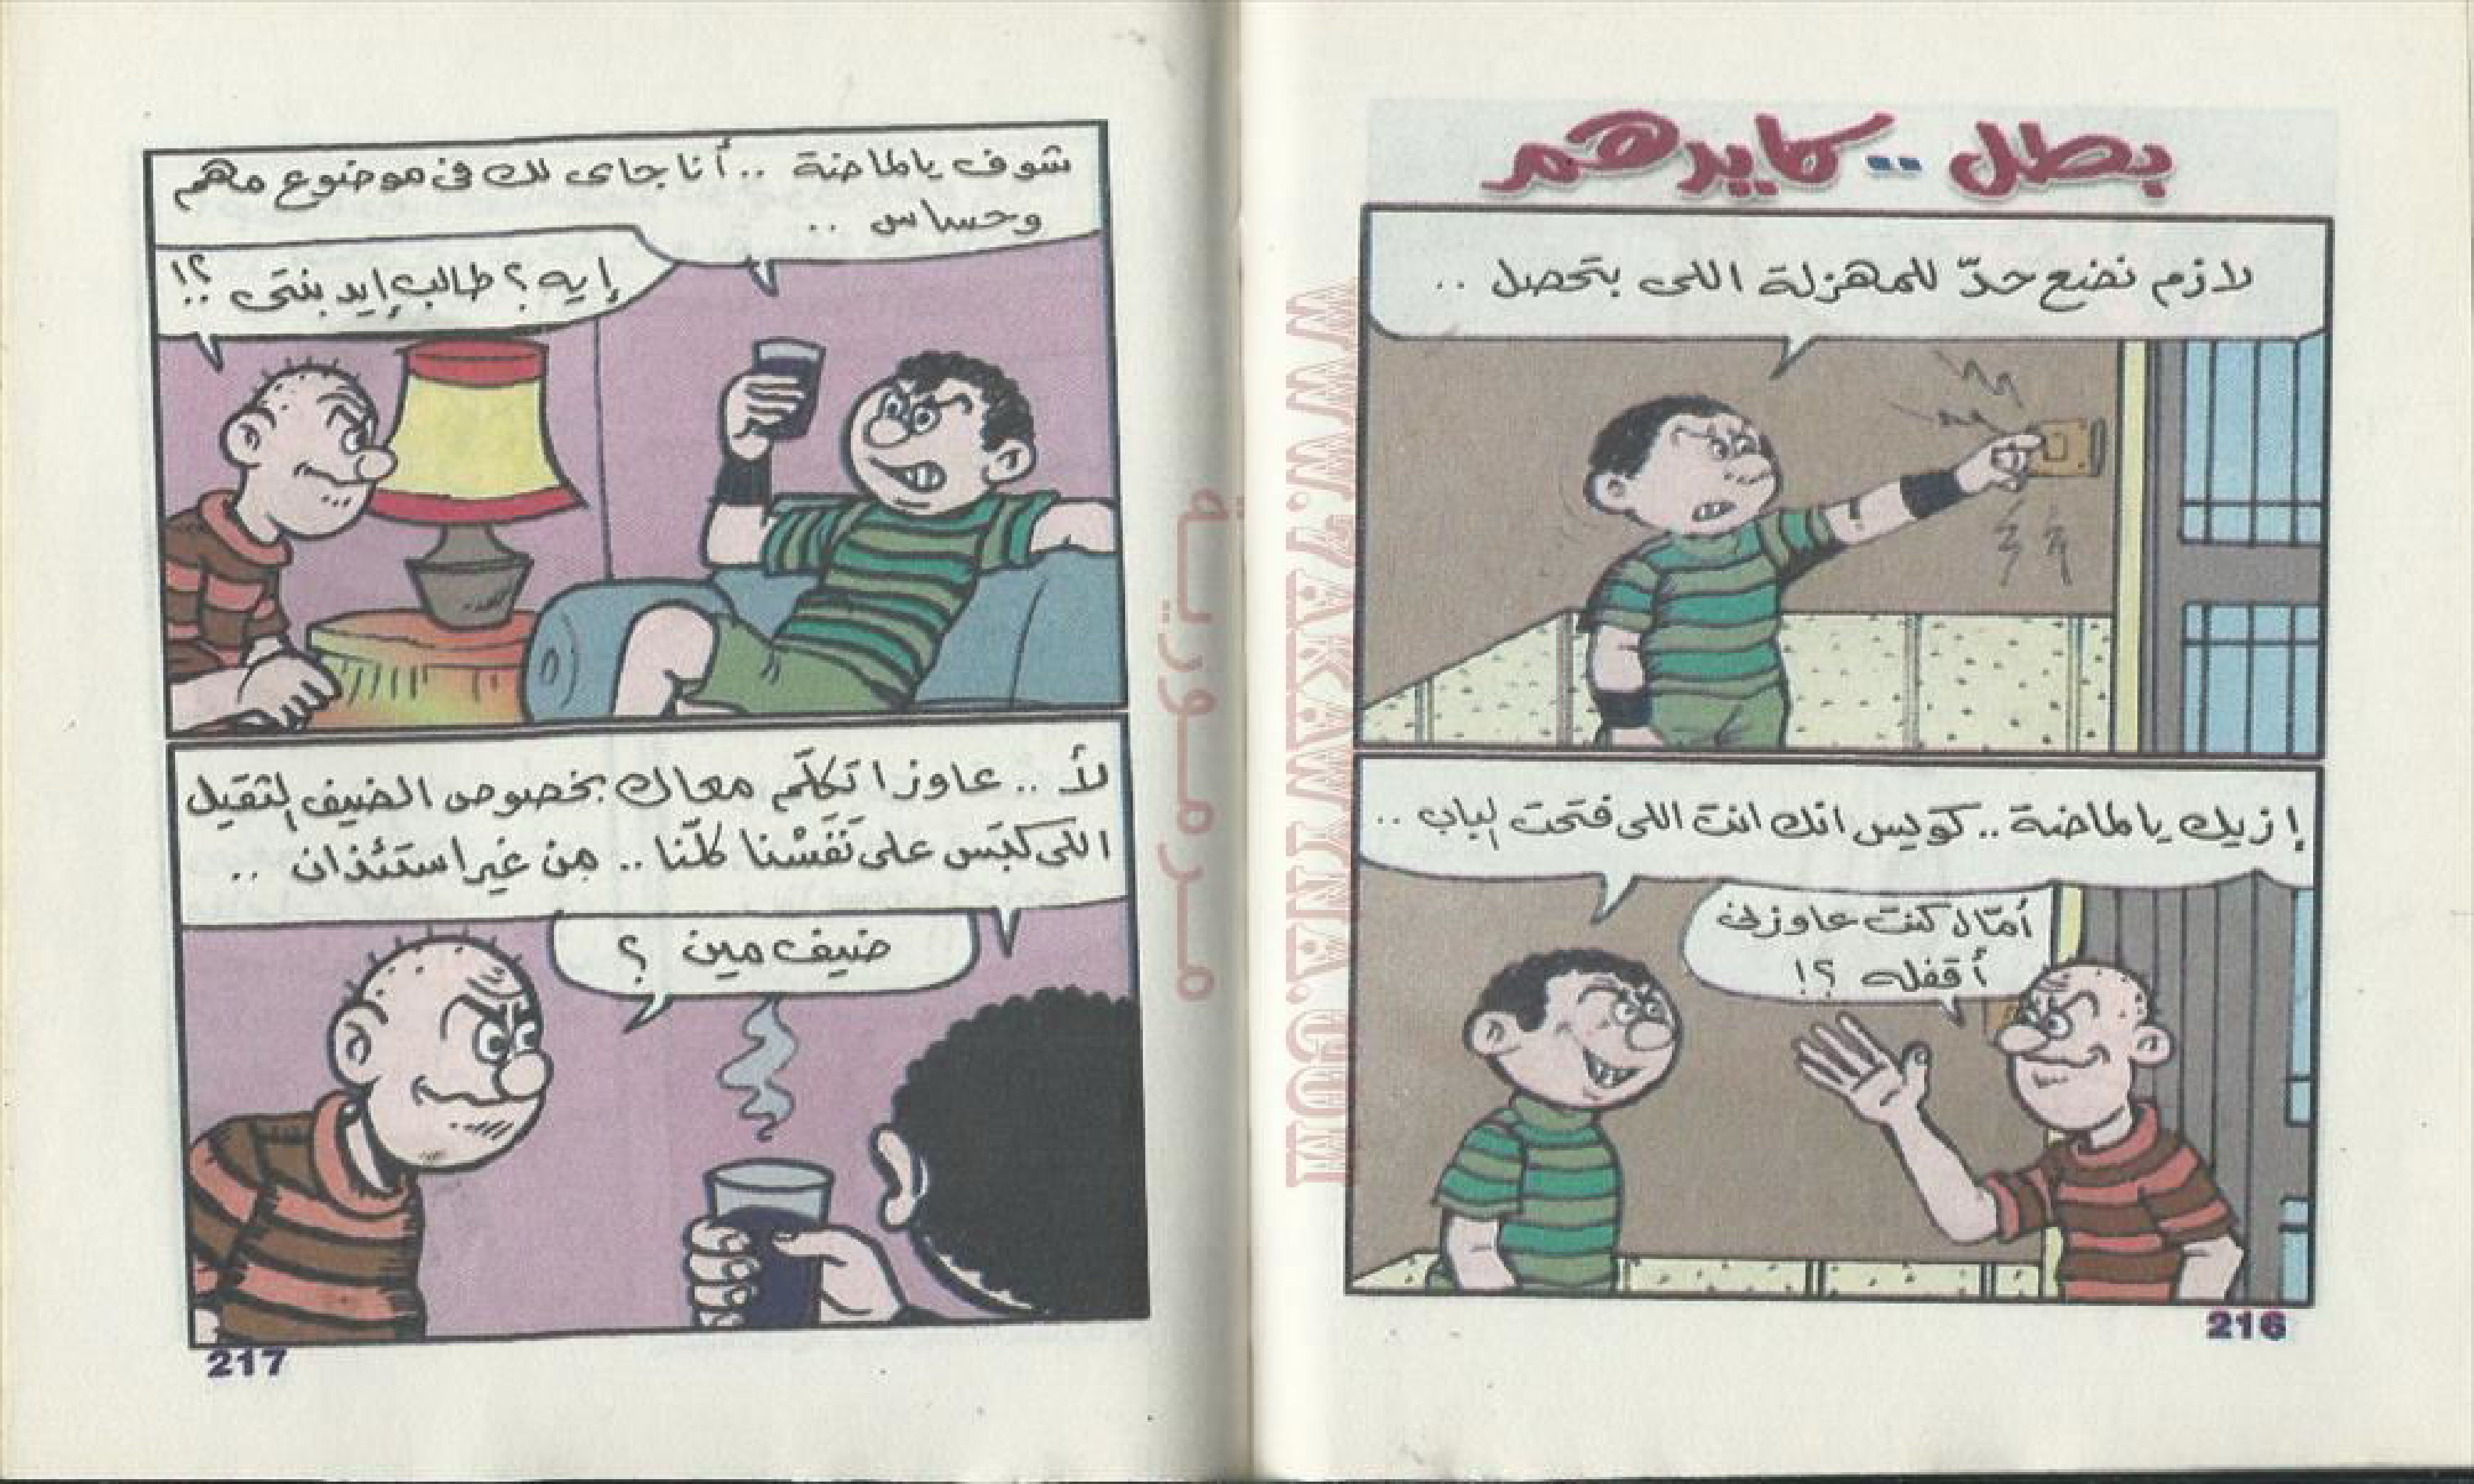 بطل .. كايدهم
لازم نضع حدّ للمهزلة اللى بتحصل ..
إزيك يا لماضة .. كويس انك انت اللى فتحت الباب ..
أمّال كنت عاوزنى
أقفله ؟!
216
شوف يا لماضة .. أنا جاى لك فى موضوع مهم
وحساس ..
إيه ؟ طالب إيد بنتى ؟!
لأ .. عاوز اتكلّم معاك بخصوص الضيف التقيل
اللى كبَس على نَفَسْنا كلّنا .. من غير استئذان ..
ضيف مين ؟
217
مرمورية
WWW.ARABWINRAR.COM